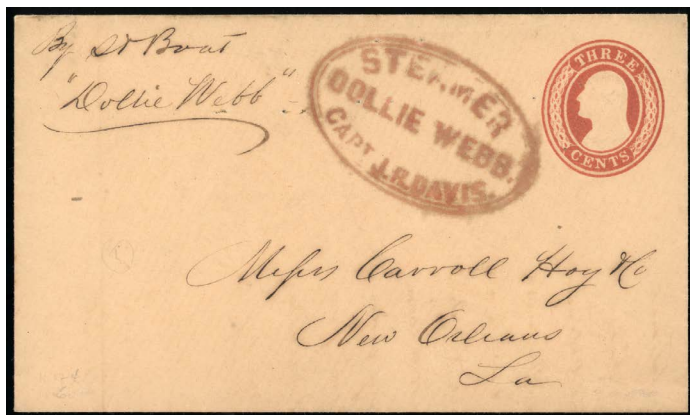 By St Boat
"Dollie Webb"
STEAMER
DOLLIE WEBB.
CAPT J.R. DAVIS.
THREE
CENTS
Messrs Carroll Hoy & Co
New Orleans
La